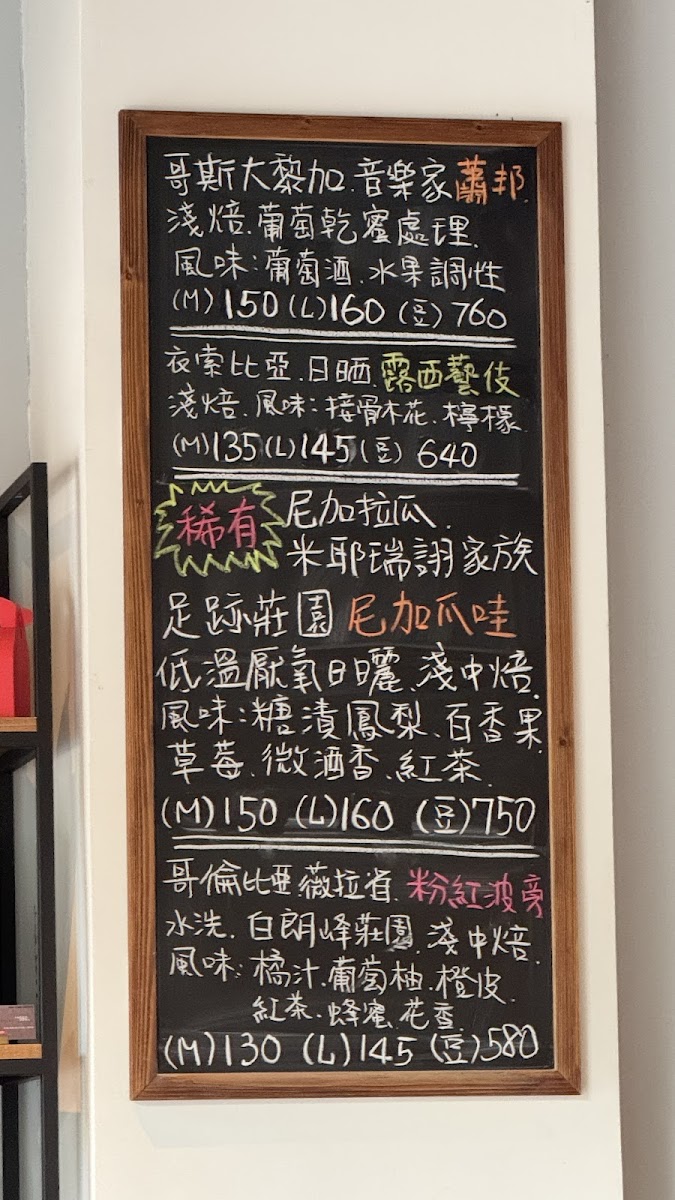 哥斯大黎加.音樂家蕭邦.
淺焙.葡萄乾蜜處理.
風味:葡萄酒.水果調性
(M)150(L)160(豆)760
衣索比亞.日晒.露西藝伎
淺焙.風味:接骨木花.檸檬.
(M)135(L)145(豆)640
稀有
尼加拉瓜.
米耶瑞詡家族
足跡莊園 尼加爪哇
低溫厭氧日曬.淺中焙.
風味:糖漬鳳梨.百香果.
草莓.微酒香.紅茶.
(M)150 (L)160 (豆)750
哥倫比亞薇拉省.粉紅波旁
水洗.白朗峰莊園.淺中焙.
風味:橘汁.葡萄柚.橙皮.
紅茶.蜂蜜.花香
(M)130 (L)145 (豆)580